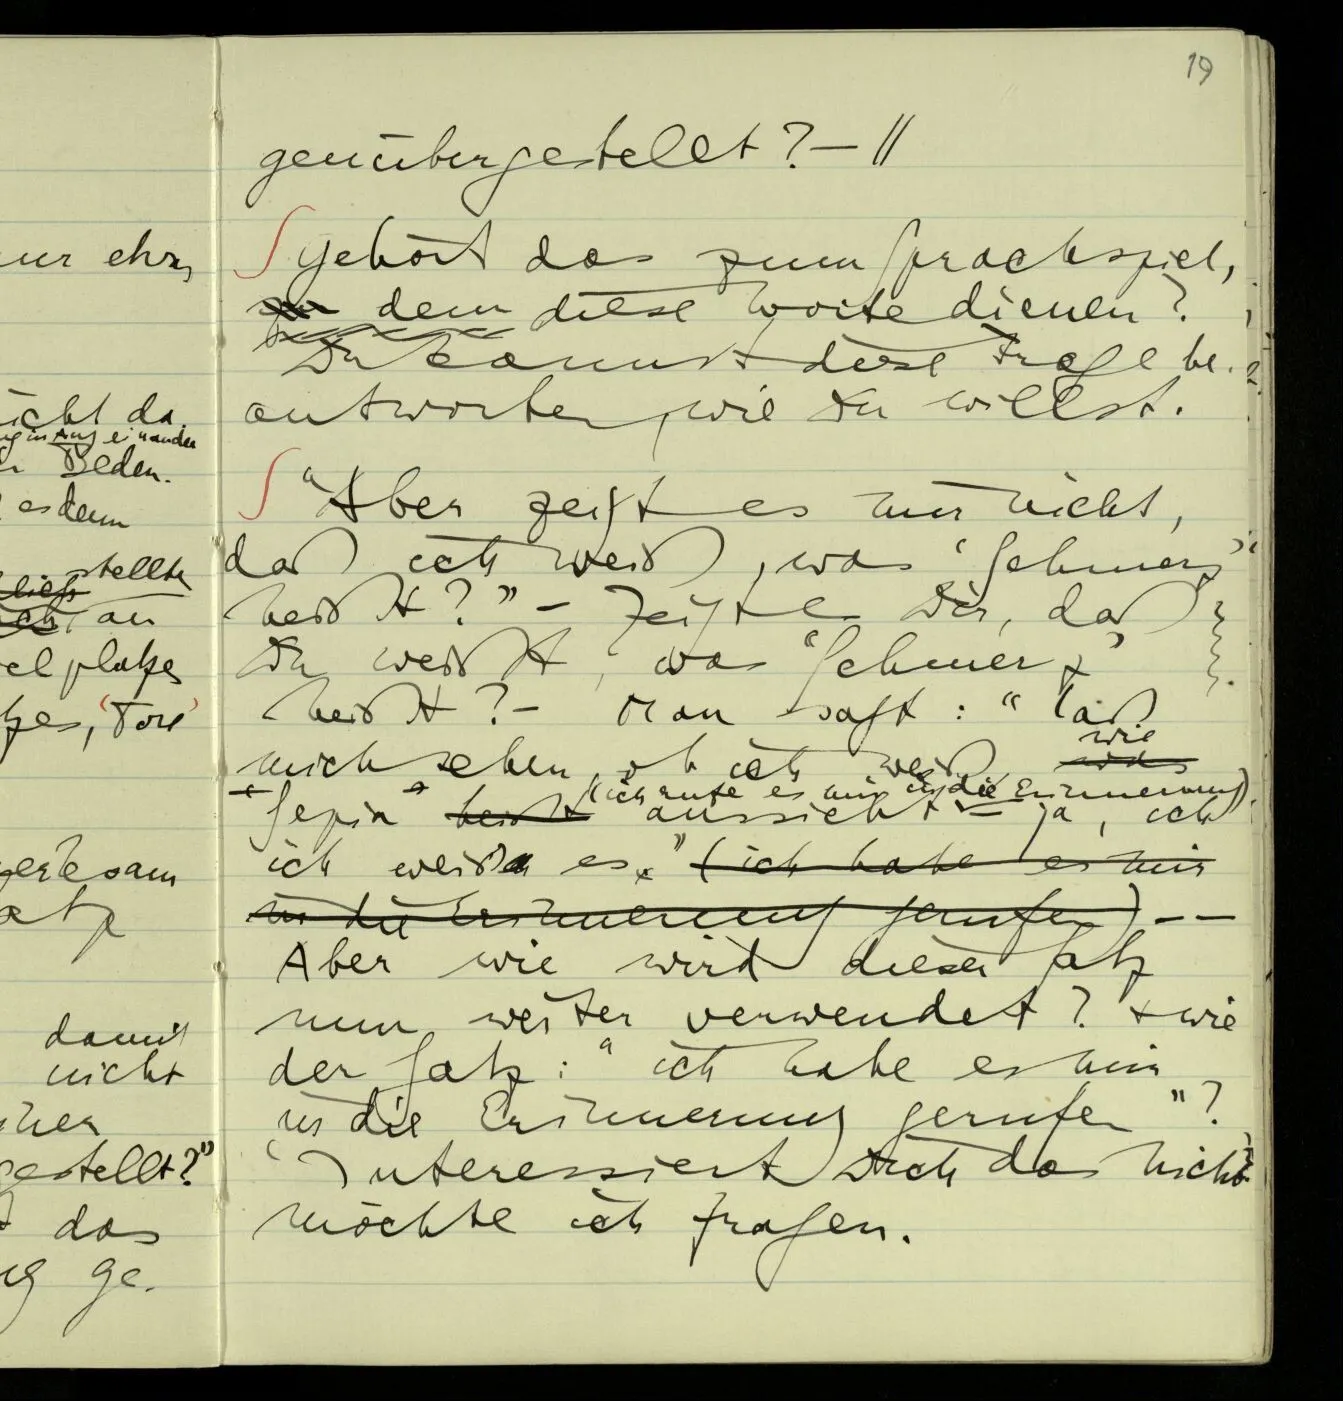 19
genübergestellt? — //
∫ Gehört das zum Sprachspiel,
dem diese Worte dienen?
Du kannst diese Frage be-
antworten, wie Du willst.
∫ "Aber zeigt es mir nicht,
daß ich weiß, was 'Schmerz'
heißt?" – Zeigte Dir, daß
Du weißt, was "Schmerz"
heißt? – Man sagt: "laß
mich sehen, ob ich weiß was wie
'Sepia' heißt aussieht (ich rufe es mir in die Erinnerung) – ja, ich
ich weiß es." (ich habe es mir
in die Erinnerung gerufen) – –
Aber wie wird dieser Satz
nun weiter verwendet? + wie
der Satz: "ich habe es mir
in die Erinnerung gerufen"?
'Interessiert Dich das nicht?'
möchte ich fragen.
nur ehr
nicht da
Aug' einander
Reden.
es denn
stellte
ließ
an
platzes
'Tore'
damit
nicht
gestellt?"
das
ge-